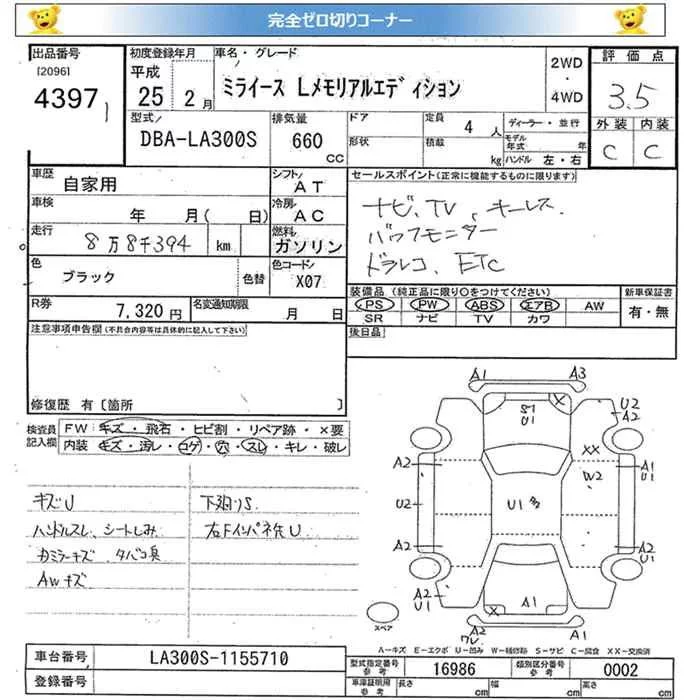 完全ゼロ切りコーナー
出品番号
[2096]
4397
初度登録年月
平成
25年 2月
車名・グレード
ミライース Lメモリアルエディション
2WD
・
4WD
評価点
3.5
外装 内装
C C
型式/
DBA-LA300S
排気量
660
CC
ドア
形状
定員 4 人
積載 kg
ディーラー・並行
モデル年式 年
ハンドル 左・右
車歴
自家用
シフト
AT
車検
年 月( 日)
冷房
AC
走行
8万8千394 km
燃料
ガソリン
色
ブラック
色替
色コード
X07
R券
7,320 円
名変通知期限
月 日
セールスポイント(正常に機能するものに限ります)
ナビ、TV、キーレス
ドラレコ、ETC
装備品 (純正品に限り○をつけてください)
PS PW ABS エアB AW
SR ナビ TV カワ
新車保証書
有・無
後日品
注意事項申告欄(不具合内容等は具体的に記入して下さい)
修復歴 有〔箇所 〕
検査員
記入欄
FW: キズ・飛石・ヒビ割・リペア跡・×要
内装 キズ・汚レ・コゲ・穴・スレ・キレ・破レ
キズU
ハンドルスレ、シートしみ
カミラーキズ タバコ臭
AWキズ
下廻りS
右Fインパネ先U
A1 A3
S1
U1
X
U2
A2
XX
W2
A2
A1
U1
U2
U1多
A2
A2
U1
A2
U1
X
A1
A2
ワレ
A1
スペア
A-キズ E-エクボ U-凹み W-補修跡 S-サビ C-腐食 XX-交換済
車台番号
LA300S-1155710
登録番号
型式指定番号
参考
16986
類別区分番号
参考
0002
車庫証明用
参考
長さ cm
幅 cm
高さ cm